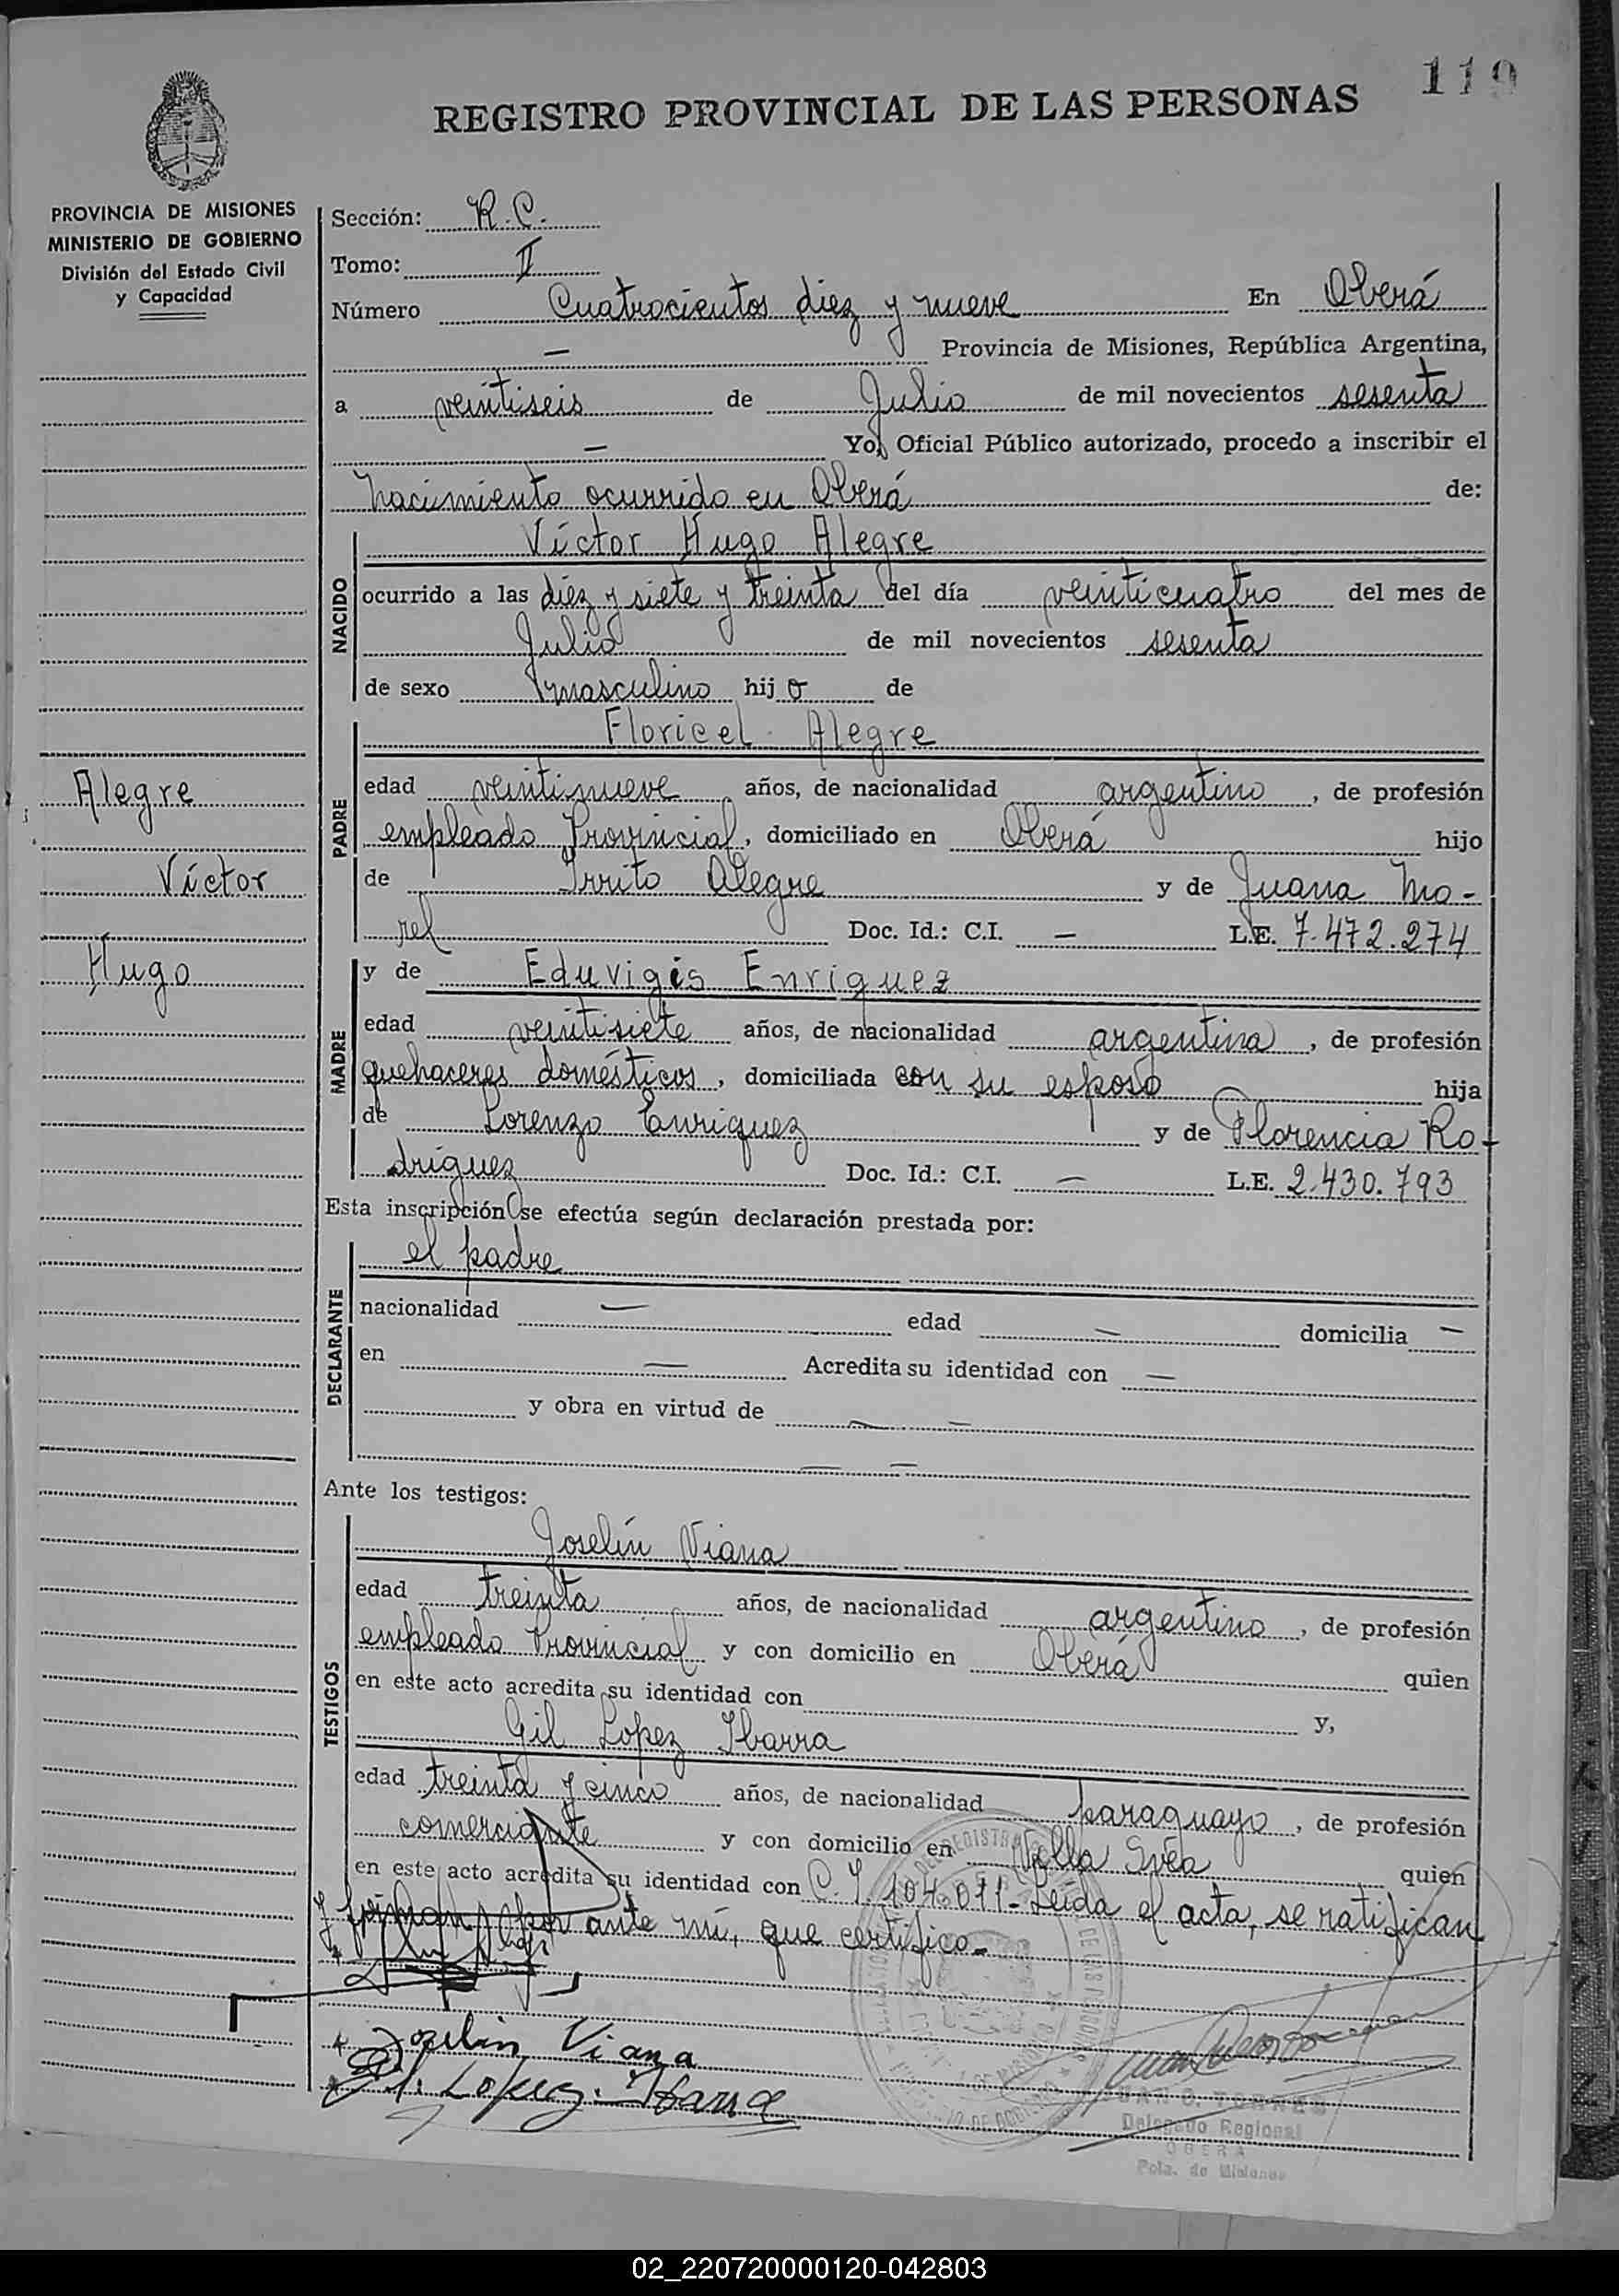 119
REGISTRO PROVINCIAL DE LAS PERSONAS
PROVINCIA DE MISIONES
MINISTERIO DE GOBIERNO
División del Estado Civil
y Capacidad
Alegre
Víctor
Hugo
Sección: R.C.
Tomo: II
Número Cuatrocientos diez y nueve En Oberá
— Provincia de Misiones, República Argentina,
a veintiseis de Julio de mil novecientos sesenta
— Yo, Oficial Público autorizado, procedo a inscribir el
nacimiento ocurrido en Oberá de:
NACIDO
Víctor Hugo Alegre
ocurrido a las diez y siete y treinta del día veinticuatro del mes de
Julio de mil novecientos sesenta
de sexo masculino hijo de
PADRE
Floricel Alegre
edad veintinueve años, de nacionalidad argentino, de profesión
empleado Provincial, domiciliado en Oberá hijo
de Irrito Alegre y de Juana Mo-
rel Doc. Id.: C.I. — L.E. 7.472.274
MADRE
y de Eduvigis Enriquez
edad veintisiete años, de nacionalidad argentina, de profesión
quehaceres domésticos, domiciliada con su esposo hija
de Lorenzo Enriquez y de Florencia Ro-
driguez Doc. Id.: C.I. — L.E. 2.430.793
Esta inscripción se efectúa según declaración prestada por:
DECLARANTE
el padre
nacionalidad — edad — domicilia —
en — Acredita su identidad con —
y obra en virtud de — —
— —
Ante los testigos:
TESTIGOS
Joselín Viana
edad treinta años, de nacionalidad argentino, de profesión
empleado Provincial y con domicilio en Oberá quien
en este acto acredita su identidad con y,
Gil Lopez Ibarra
edad treinta y cinco años, de nacionalidad paraguayo, de profesión
comerciante y con domicilio en Villa Svéa quien
en este acto acredita su identidad con C.I. 104.011.- Leída el acta, se ratifican
y firman por ante mí, que certifico.-
Joselin Viana
Gil. Lopez. Ibarra
JUAN O. TORRES
Delegado Regional
OBERA
Pcia. de Misiones
02_220720000120-042803